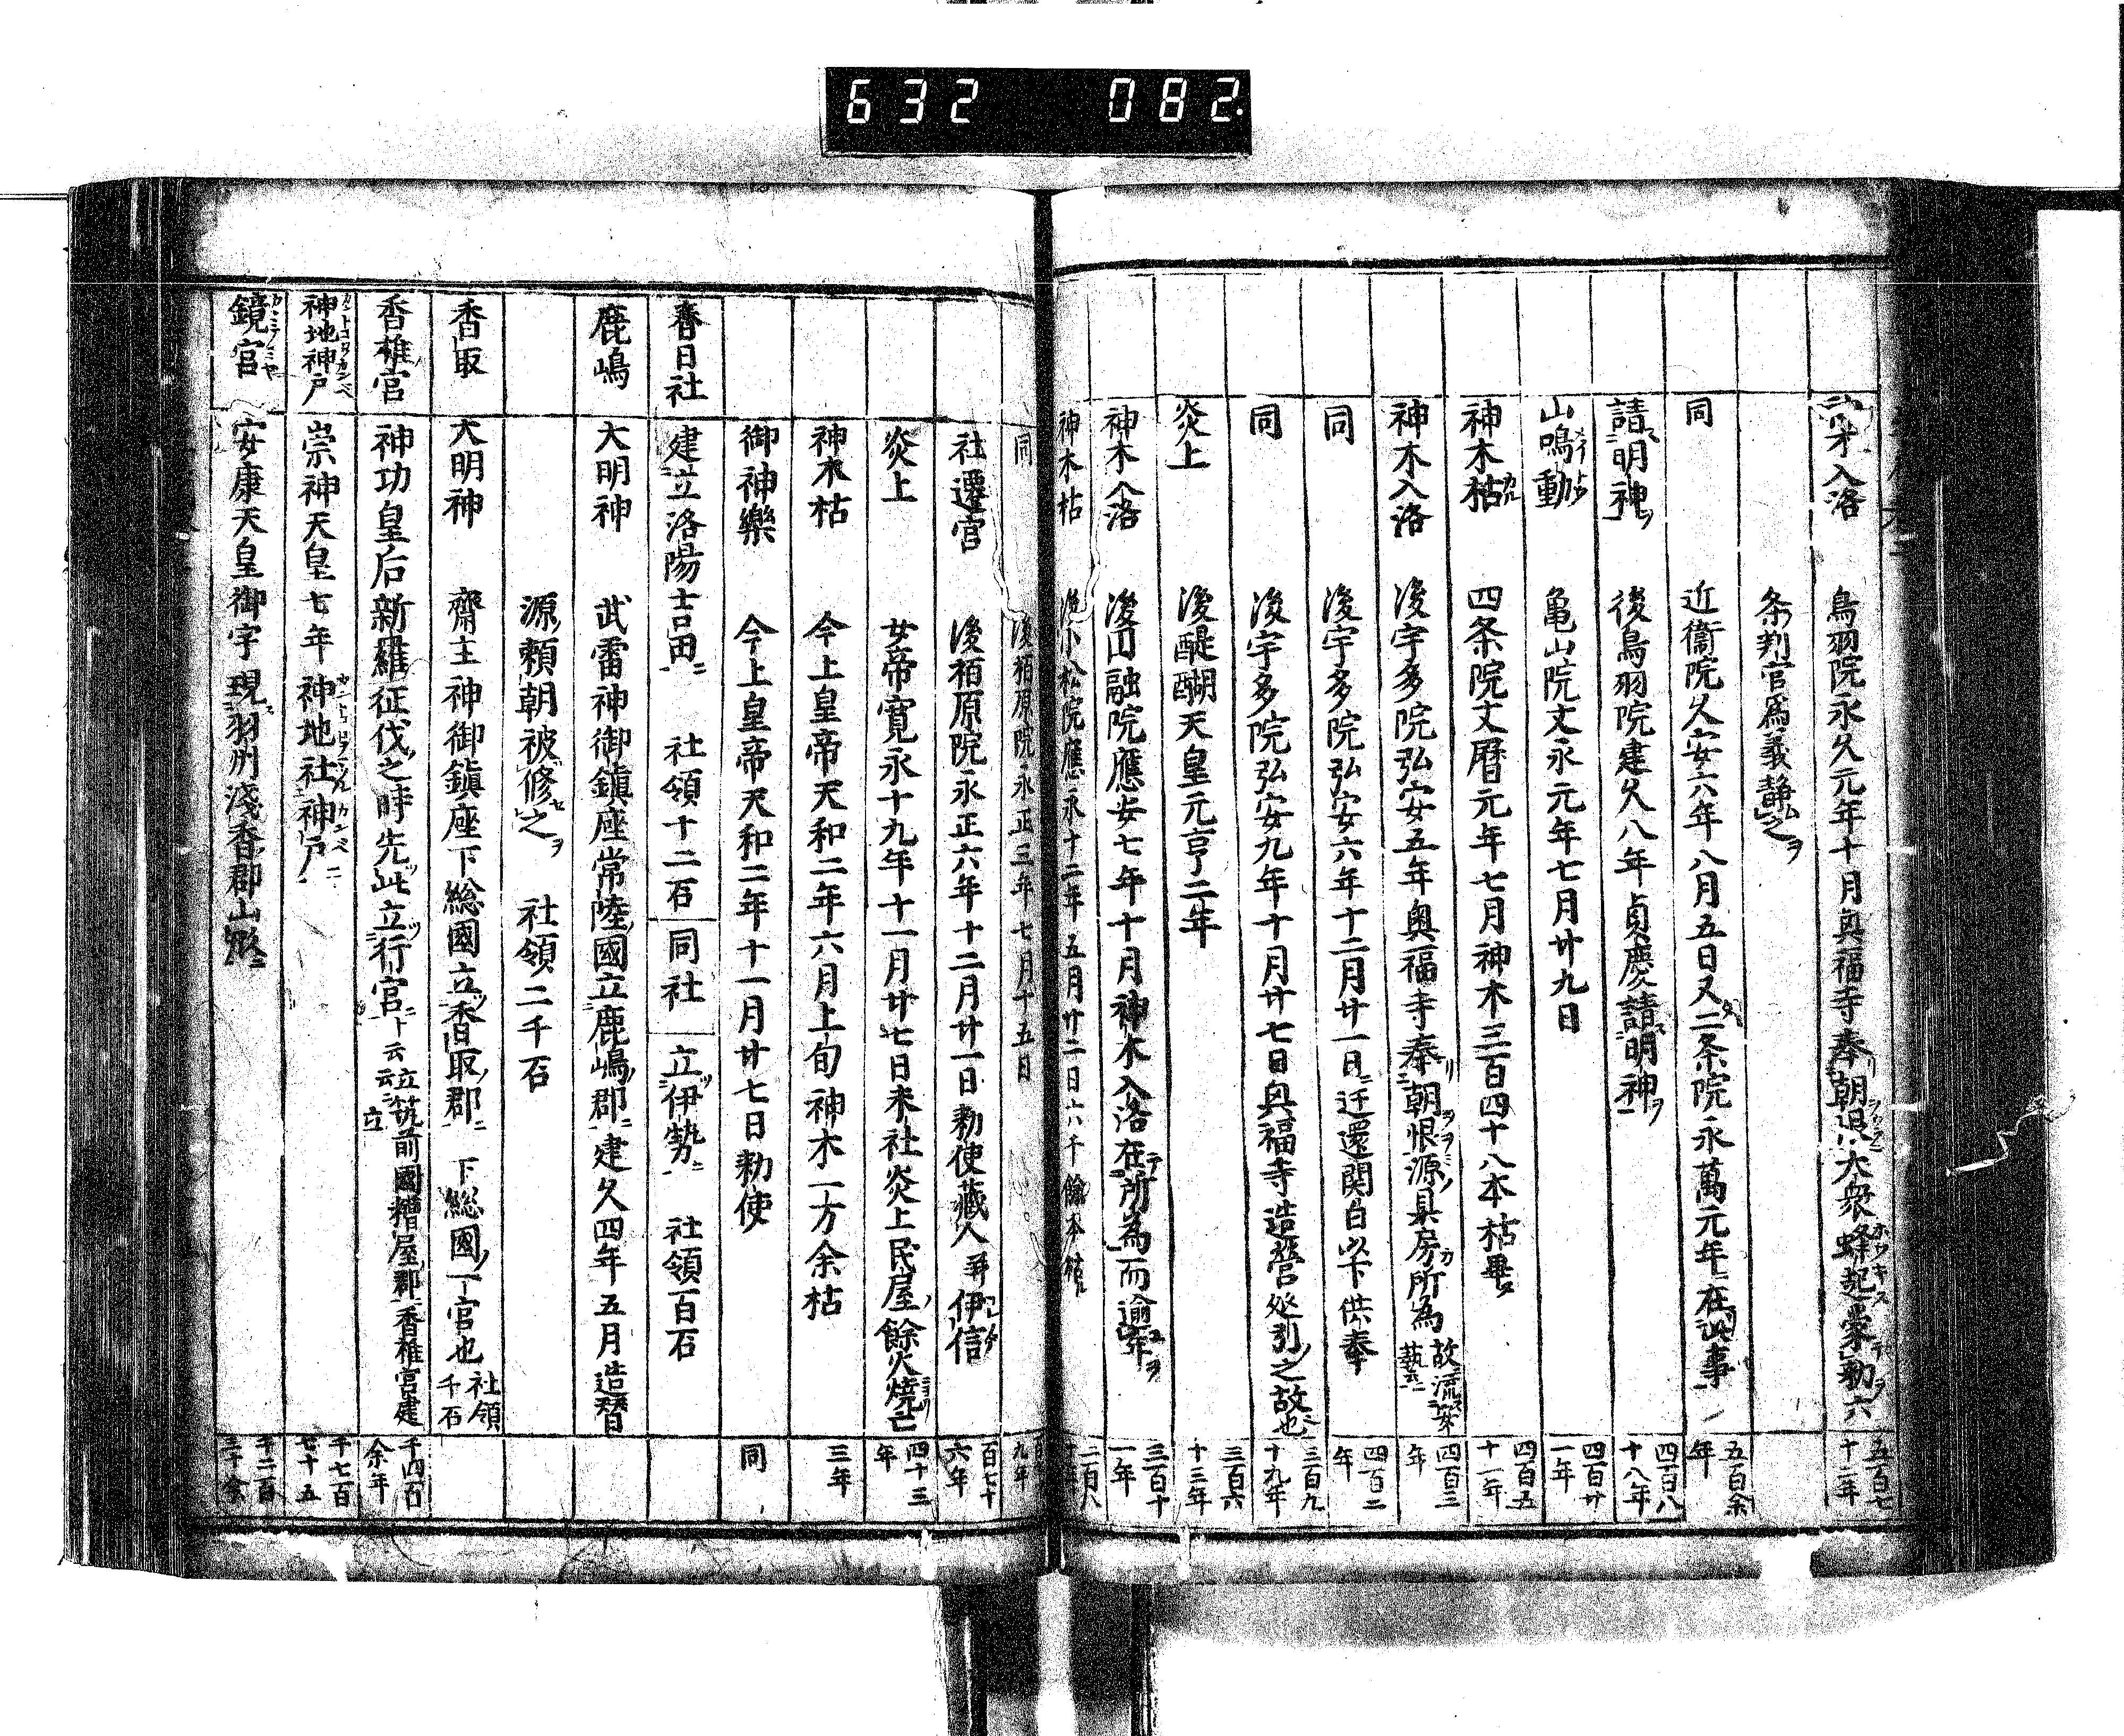 632 082.
宍才入洛 鳥羽院永久元年十月興福寺奉朝退大衆蜂起蒙勅六 五百七十二年
条判官爲義静之
同 近衞院久安六年八月五日又二条院永萬元年在此事 五百余年
請明神 後鳥羽院建久八年貞慶請明神 四百八十八年
山鳴動 亀山院文永元年七月廿九日 四百廿一年
神木枯 四条院文暦元年七月神木三百四十八本枯畢 四百五十一年
神木入洛 後宇多院弘安五年興福寺奉朝恨源具房所為故流安藝 四百三年
同 後宇多院弘安六年十二月廿一日迁還関白以下供奉 四百二年
同 後宇多院弘安九年十月廿七日興福寺造營延引之故也 三百六十九年
炎上 後醍醐天皇元亨二年 三百六十三年
神木入洛 後円融院應安七年十月神木入洛在所為而逾年 三百十一年
神木枯 後小松院應永十二年五月廿二日六千餘本枯 二百八
同 後栢原院永正三年七月十五日
社遷宮 後栢原院永正六年十二月廿一日勅使藏人 伊信 百七十六年
炎上 女帝寛永十九年十一月廿七日来社炎上民屋餘火焼亡 四十三年
神木枯 今上皇帝天和二年六月上旬神木一方余枯 三年
御神樂 今上皇帝天和二年十一月廿七日勅使 同
春日社 建立洛陽吉田 社領十二石 同社 立伊勢 社領百石
鹿嶋 大明神 武雷神御鎭座常陸國立鹿嶋郡建久四年五月造替
源頼朝被修之 社領二千石
香取 大明神 齋主神御鎭座下総國立香取郡 下総國一宮也 社領千石
香椎宮 神功皇后新羅征伐之時先此立行宮 云云 立筑前國糟屋郡香椎宮建立 千四百余年
神地神戸 崇神天皇七年神地社神戸 千七百七十五
鏡宮 安康天皇御宇現羽州淺香郡山形 千二百三十余